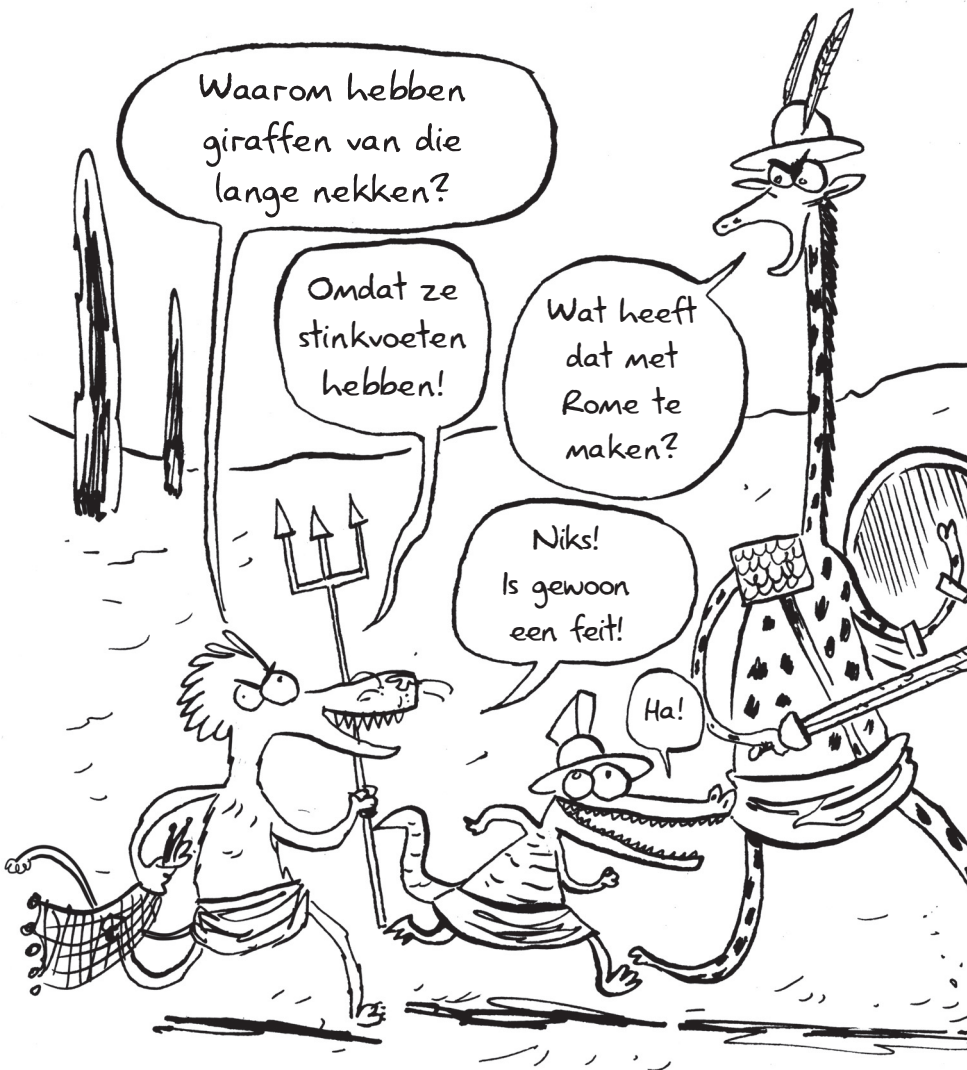 Waarom hebben
giraffen van die
lange nekken?
Omdat ze
stinkvoeten
hebben!
Wat heeft
dat met
Rome te
maken?
Niks!
Is gewoon
een feit!
Ha!